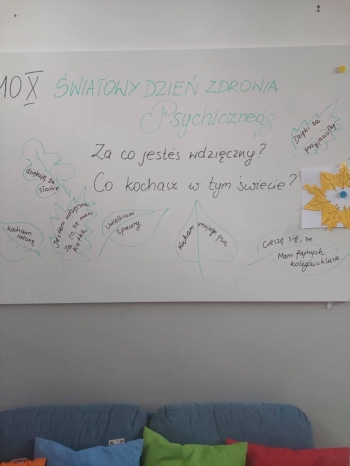 10 X ŚWIATOWY DZIEŃ ZDROWIA
Psychicznego
Za co jesteś wdzięczny?
Co kochasz w tym świecie?
Dzięki za
przyjaciółkę
dziękuję za
kocham
rodzinę
Jestem wdzięczna
za to, że mam
kotka
Uwielbiam
sprawy
Kocham mojego Psa
Cieszę się, że
Mam fajnych
kolegów w klasie